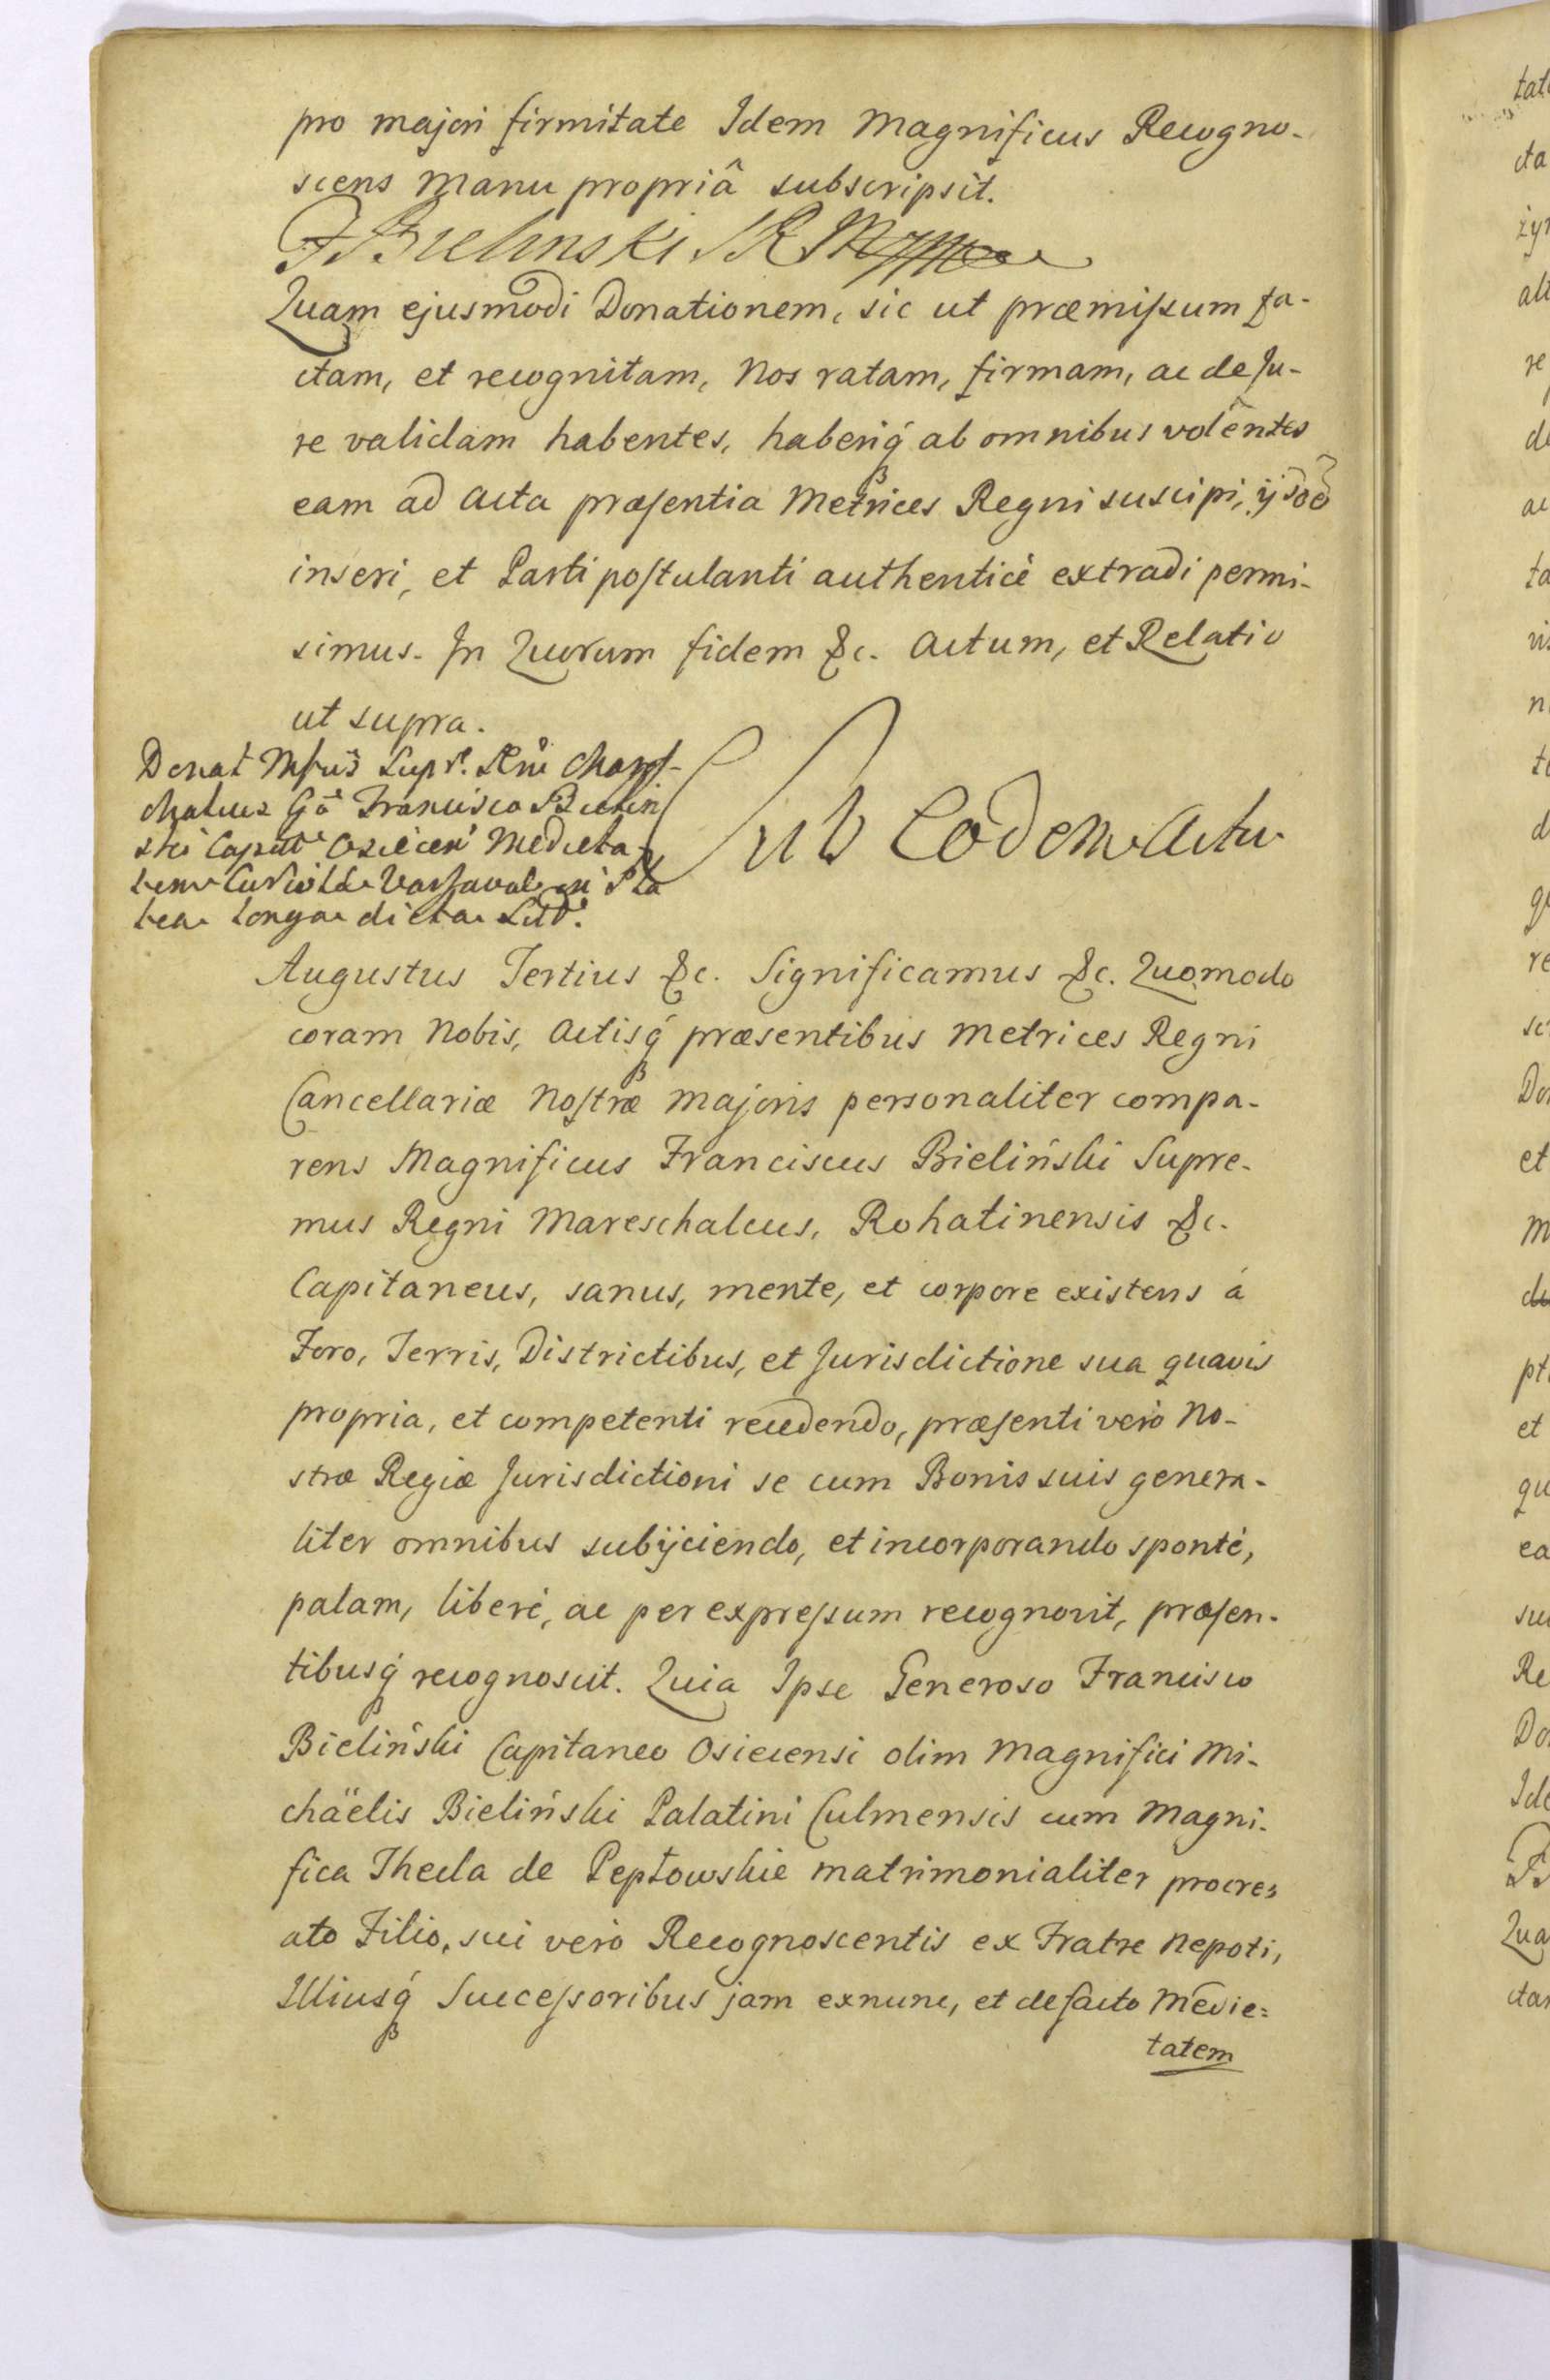 pro majori firmitate Idem Magnificus Recogno-
scens manu propriâ subscripsit.
F Bielinski
Quam ejusmodi Donationem, sic ut præmiſsum fa-
ctam, et recognitam, Nos ratam, firmam, ac de Ju-
re validam habentes, haberiq́ ab omnibus volentes
eam ad Acta præſentia Metrices Regni suscipi,
inseri, et Parti poſtulanti authenticè extradi permi-
simus. In Quorum fidem &c. Actum, et Relatio
ut supra.
Donat
Francisco Bielin
ski Medieta-
tem in Pla
tea Longa dicta
Sub Eodem Actu
Augustus Tertius &c. Significamus &c. Quomodo
coram Nobis, Actisq́ præsentibus Metrices Regni
Cancellariæ Noſtræ Majoris personaliter compa-
rens Magnificus Franciscus Bieliński Supre-
mus Regni Mareschalcus, Rohatinensis &c.
Capitaneus, sanus, mente, et corpore existens á
Foro, Terris, Districtibus, et Jurisdictione sua quavis
propria, et competenti recedendo, præſenti verò No-
stræ Regiæ Jurisdictioni se cum Bonis suis genera-
liter omnibus subijciendo, et incorporando spontè,
palam, liberè, ac per expreſsum recognovit, præſen-
tibusq́ recognoscit. Quia Ipse Generoso Francisco
Bieliński Capitaneo Osiecensi olim Magnifici Mi-
chäelis Bieliński Palatini Culmensis cum Magni-
fica Thecla de Pepłowskie matrimonialiter procre=
ato Filio, sui verò Recognoscentis ex Fratre Nepoti,
Illiusq́ Succeſsoribus jam exnunc, et defacto Medie=
tatem